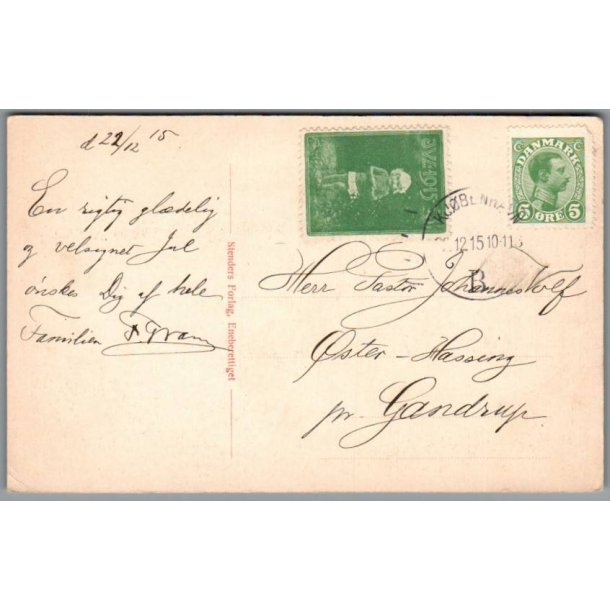 d 22/12 15
En rigtig glædelig
og velsignet Jul
ønskes Dig af hele
Familien
Stenders Forlag, Eneberettiget
JUL 1915
DANMARK
5 ØRE 5
KJØBENHAVN
12.15 10-11
B
Herr Pastor Johannes Kolf
Øster-Hassing
pr. Gandrup.